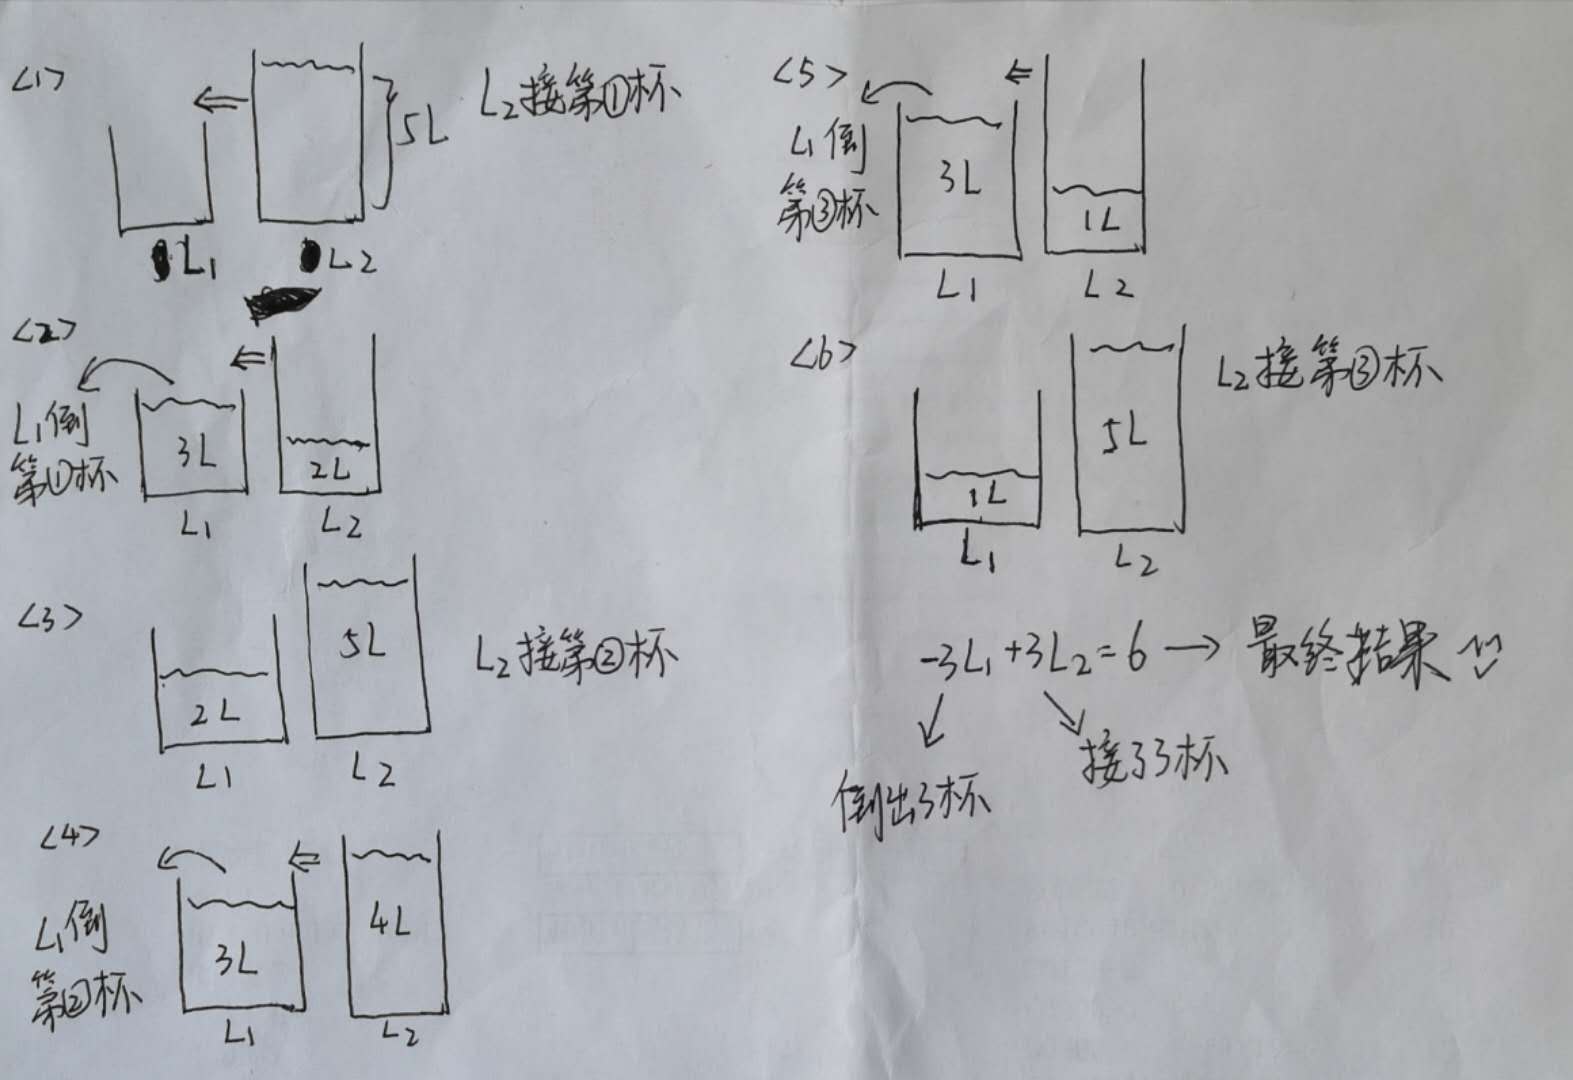 <1>
5L
L₂接第①杯
L₁
L₂
<2>
L₁倒
第①杯
3L
2L
L₁
L₂
<3>
2L
5L
L₂接第②杯
L₁
L₂
<4>
L₁倒
第②杯
3L
4L
L₁
L₂
<5>
L₁倒
第③杯
3L
1L
L₁
L₂
<6>
1L
5L
L₂接第③杯
L₁
L₂
-3L₁+3L₂=6→最终结果
倒出3杯
接了3杯